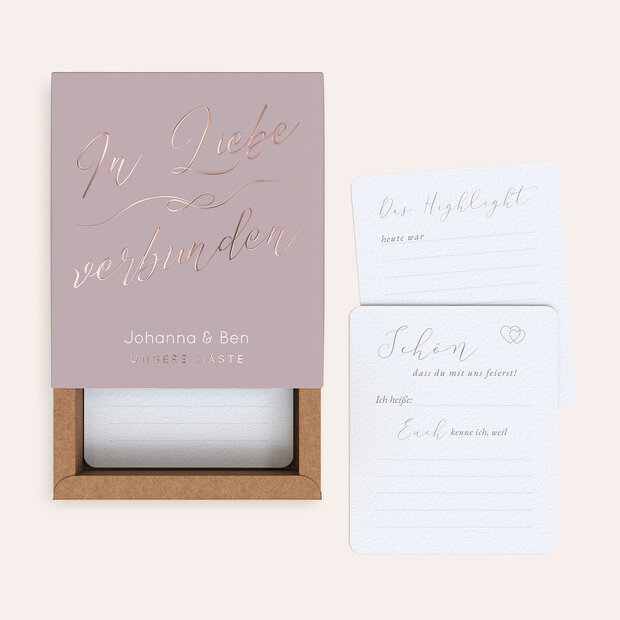 In Liebe
verbunden
Johanna & Ben
UNSERE GÄSTE
Das Highlight
heute war
Schön
dass du mit uns feierst!
Ich heiße:
Euch kenne ich, weil